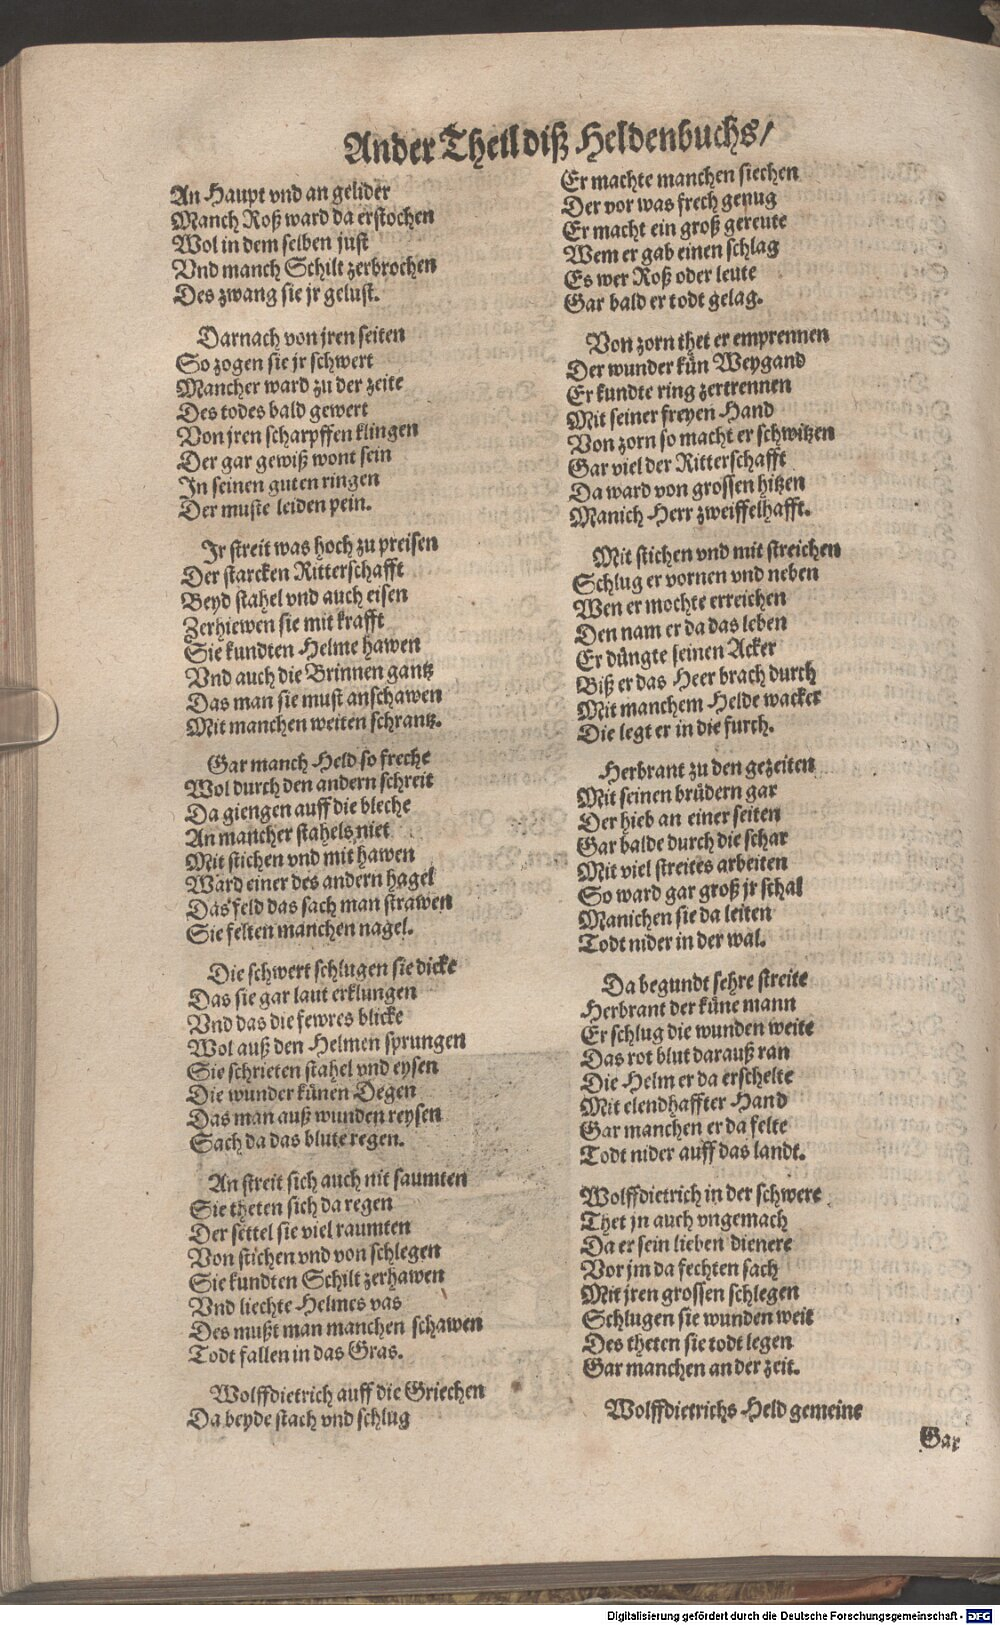 Ander Theil diß Heldenbuchs/
An Haupt vnd an gelider
Manch Roß ward da erstochen
Wol in dem selben just
Vnd manch Schilt zerbrochen
Des zwang sie jr gelust.
Darnach von jren seiten
So zogen sie jr schwert
Mancher ward zu der zeite
Des todes bald gewert
Von jren scharpffen klingen
Der gar gewiß wont sein
In seinen guten ringen
Der muste leiden pein.
Ir streit was hoch zu preisen
Der starcken Ritterschafft
Beyd stahel vnd auch eisen
Zerhiewen sie mit krafft
Sie kundten Helme hawen
Vnd auch die Brinnen gantz
Das man sie must anschawen
Mit manchen weiten schrantz.
Gar manch Held so freche
Wol durch den andern schreit
Da giengen auff die bleche
An mancher stahels niet
Mit stichen vnd mit hawen
Ward einer des andern hagel
Das feld das sach man strawen
Sie felten manchen nagel.
Die schwert schlugen sie dicke
Das sie gar laut erklungen
Vnd das die fewres blicke
Wol auß den Helmen sprungen
Sie schrieten stahel vnd eysen
Die wunder künen Degen
Das man auß wunden reysen
Sach da das blute regen.
An streit sich auch nit saumten
Sie theten sich da regen
Der settel sie viel raumten
Von stichen vnd von schlegen
Sie kundten Schilt zerhawen
Vnd liechte Helmes vas
Des mußt man manchen schawen
Todt fallen in das Gras.
Wolffdietrich auff die Griechen
Da beyde stach vnd schlug
Er machte manchen siechen
Der vor was frech genug
Er macht ein groß gereute
Wem er gab einen schlag
Es wer Roß oder leute
Gar bald er todt gelag.
Von zorn thet er emprennen
Der wunder kün Weygand
Er kundte ring zertrennen
Mit seiner freyen Hand
Von zorn so macht er schwitzen
Gar viel der Ritterschafft
Da ward von grossen hitzen
Manich Herr zweiffelhafft.
Mit stichen vnd mit streichen
Schlug er vornen vnd neben
Wen er mochte erreichen
Den nam er da das leben
Er düngte seinen Acker
Biß er das Heer brach durch
Mit manchem Helde wacker
Die legt er in die furch.
Herbrant zu den gezeiten
Mit seinen brüdern gar
Der hieb an einer seiten
Gar balde durch die schar
Mit viel streites arbeiten
So ward gar groß jr schal
Manichen sie da leiten
Todt nider in der wal.
Da begundt sehre streite
Herbrant der küne mann
Er schlug die wunden weite
Das rot blut darauß ran
Die Helm er da erschelte
Mit elendhaffter Hand
Gar manchen er da felte
Todt nider auff das landt.
Wolffdietrich in der schwere
Thet jn auch vngemach
Da er sein lieben dienere
Vor jm da fechten sach
Mit jren grossen schlegen
Schlugen sie wunden weit
Des theten sie todt legen
Gar manchen an der zeit.
Wolffdietrichs Held gemeine
Gar
Digitalisierung gefördert durch die Deutsche Forschungsgemeinschaft - DFG